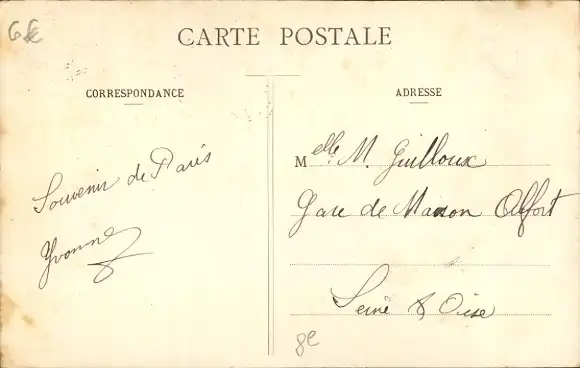 6 €
CARTE POSTALE
CORRESPONDANCE
Souvenir de Paris
Yvonne
ADRESSE
Melle. M. Guilloux
Gare de Maison Alfort
Seine & Oise
8e